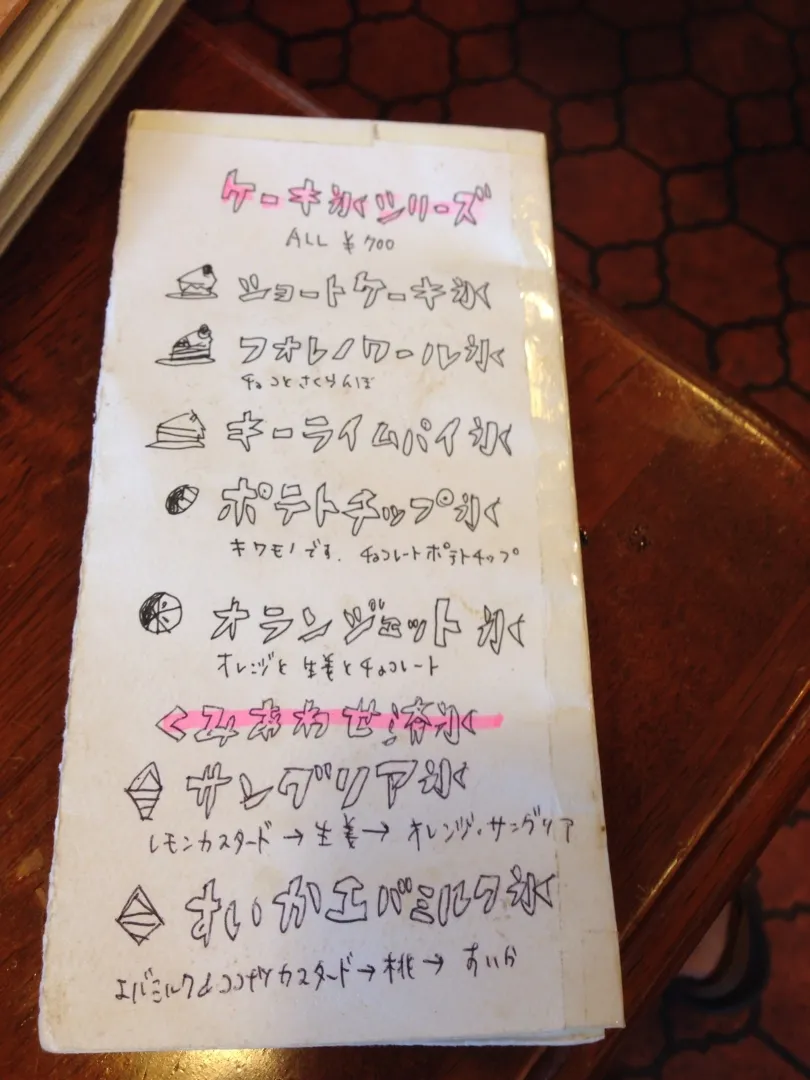 ケーキ氷シリーズ
ALL ¥700
ショートケーキ氷
フォレノワール氷
チョコとさくらんぼ
キーライムパイ氷
ポテトチップ氷
キワモノです. チョコレートポテトチップ
オランジェット氷
オレンジと生姜とチョコレート
くみあわせ済氷
サングリア氷
レモンカスタード→生姜→オレンジ・サングリア
すいかエバミルク氷
エバミルク&ココナツカスタード→桃→すいか